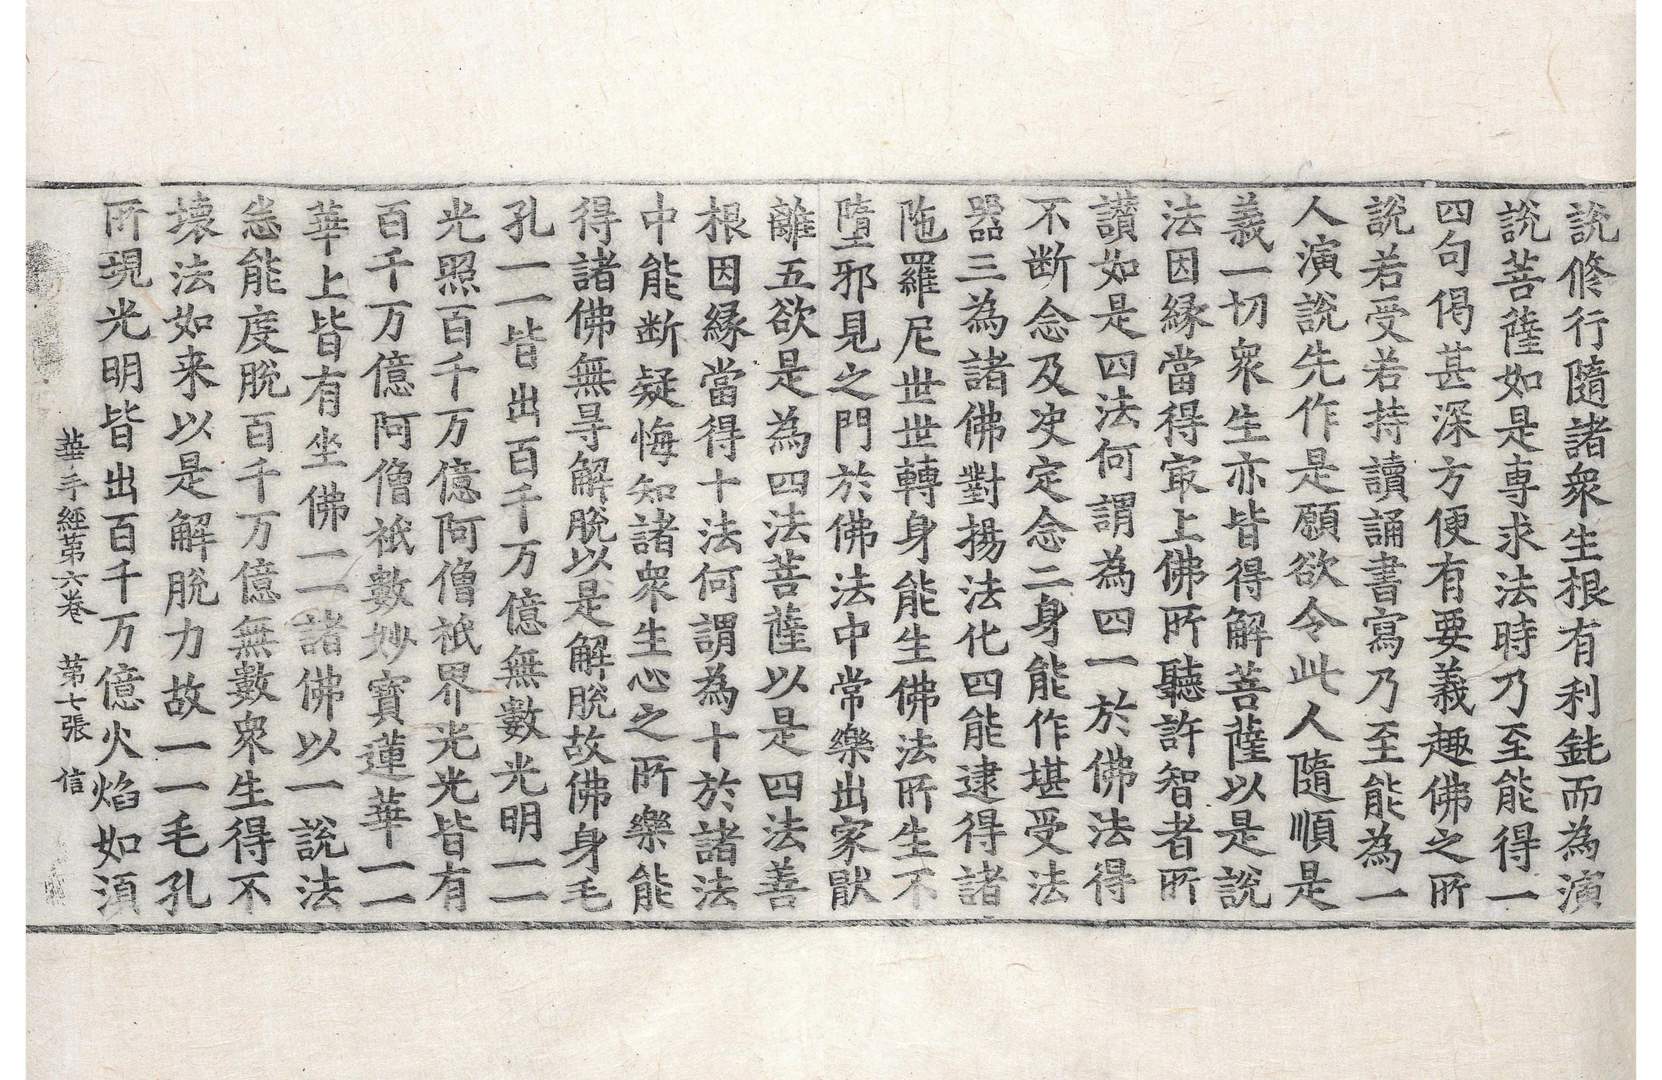 說修行隨諸衆生根有利鈍而為演
說菩薩如是専求法時乃至能得一
四句偈甚深方便有要義趣佛之所
說若受若持讀誦書寫乃至能為一
人演說先作是願欲令此人隨順是
義一切衆生亦皆得解菩薩以是說
法因緣當得冣上佛所聽許智者所
讃如是四法何謂為四一於佛法得
不断念及决定念二身能作堪受法
器三為諸佛對揚法化四能逮得諸
陁羅尼世世轉身能生佛法所生不
墮邪見之門於佛法中常樂出家猒
離五欲是為四法菩薩以是四法善
根因緣當得十法何謂為十於諸法
中能断疑悔知諸衆生心之所樂能
得諸佛無㝵解脫以是解脫故佛身毛
孔一一皆出百千万億無數光明一一
光照百千万億阿僧祇界光光皆有
百千万億阿僧祇數妙寳蓮華一一
華上皆有坐佛一一諸佛以一說法
悉能度脫百千万億無數衆生得不
壊法如来以是解脫力故一一毛孔
所現光明皆出百千万億火焰如湏
華手經第六卷　第七張　信